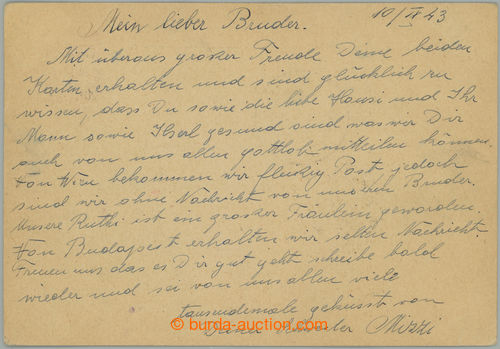 Mein lieber Bruder. 10/IV 43
Mit überaus grosser Freude Deine beiden
Karten erhalten und sind glücklich zu
wissen, dass Du sowie die liebe Hansi und Ihr
Mann sowie Iserl gesund sind was wir Dir
auch von uns allen gottlob mitteilen können.
Von Wien bekommen wir fleizig Post jedoch
sind wir ohne Nachricht von unseren Bruder.
Unsere Ruthi ist ein grosser Fräulein geworden.
Von Budapest erhalten wir selten Nachricht.
Freuen uns das es Dir gut geht schreibe bald
wieder und sei von uns allen viele
tausendemale geküsst von
Deine Schwester Mizzi
© burda-auction.com